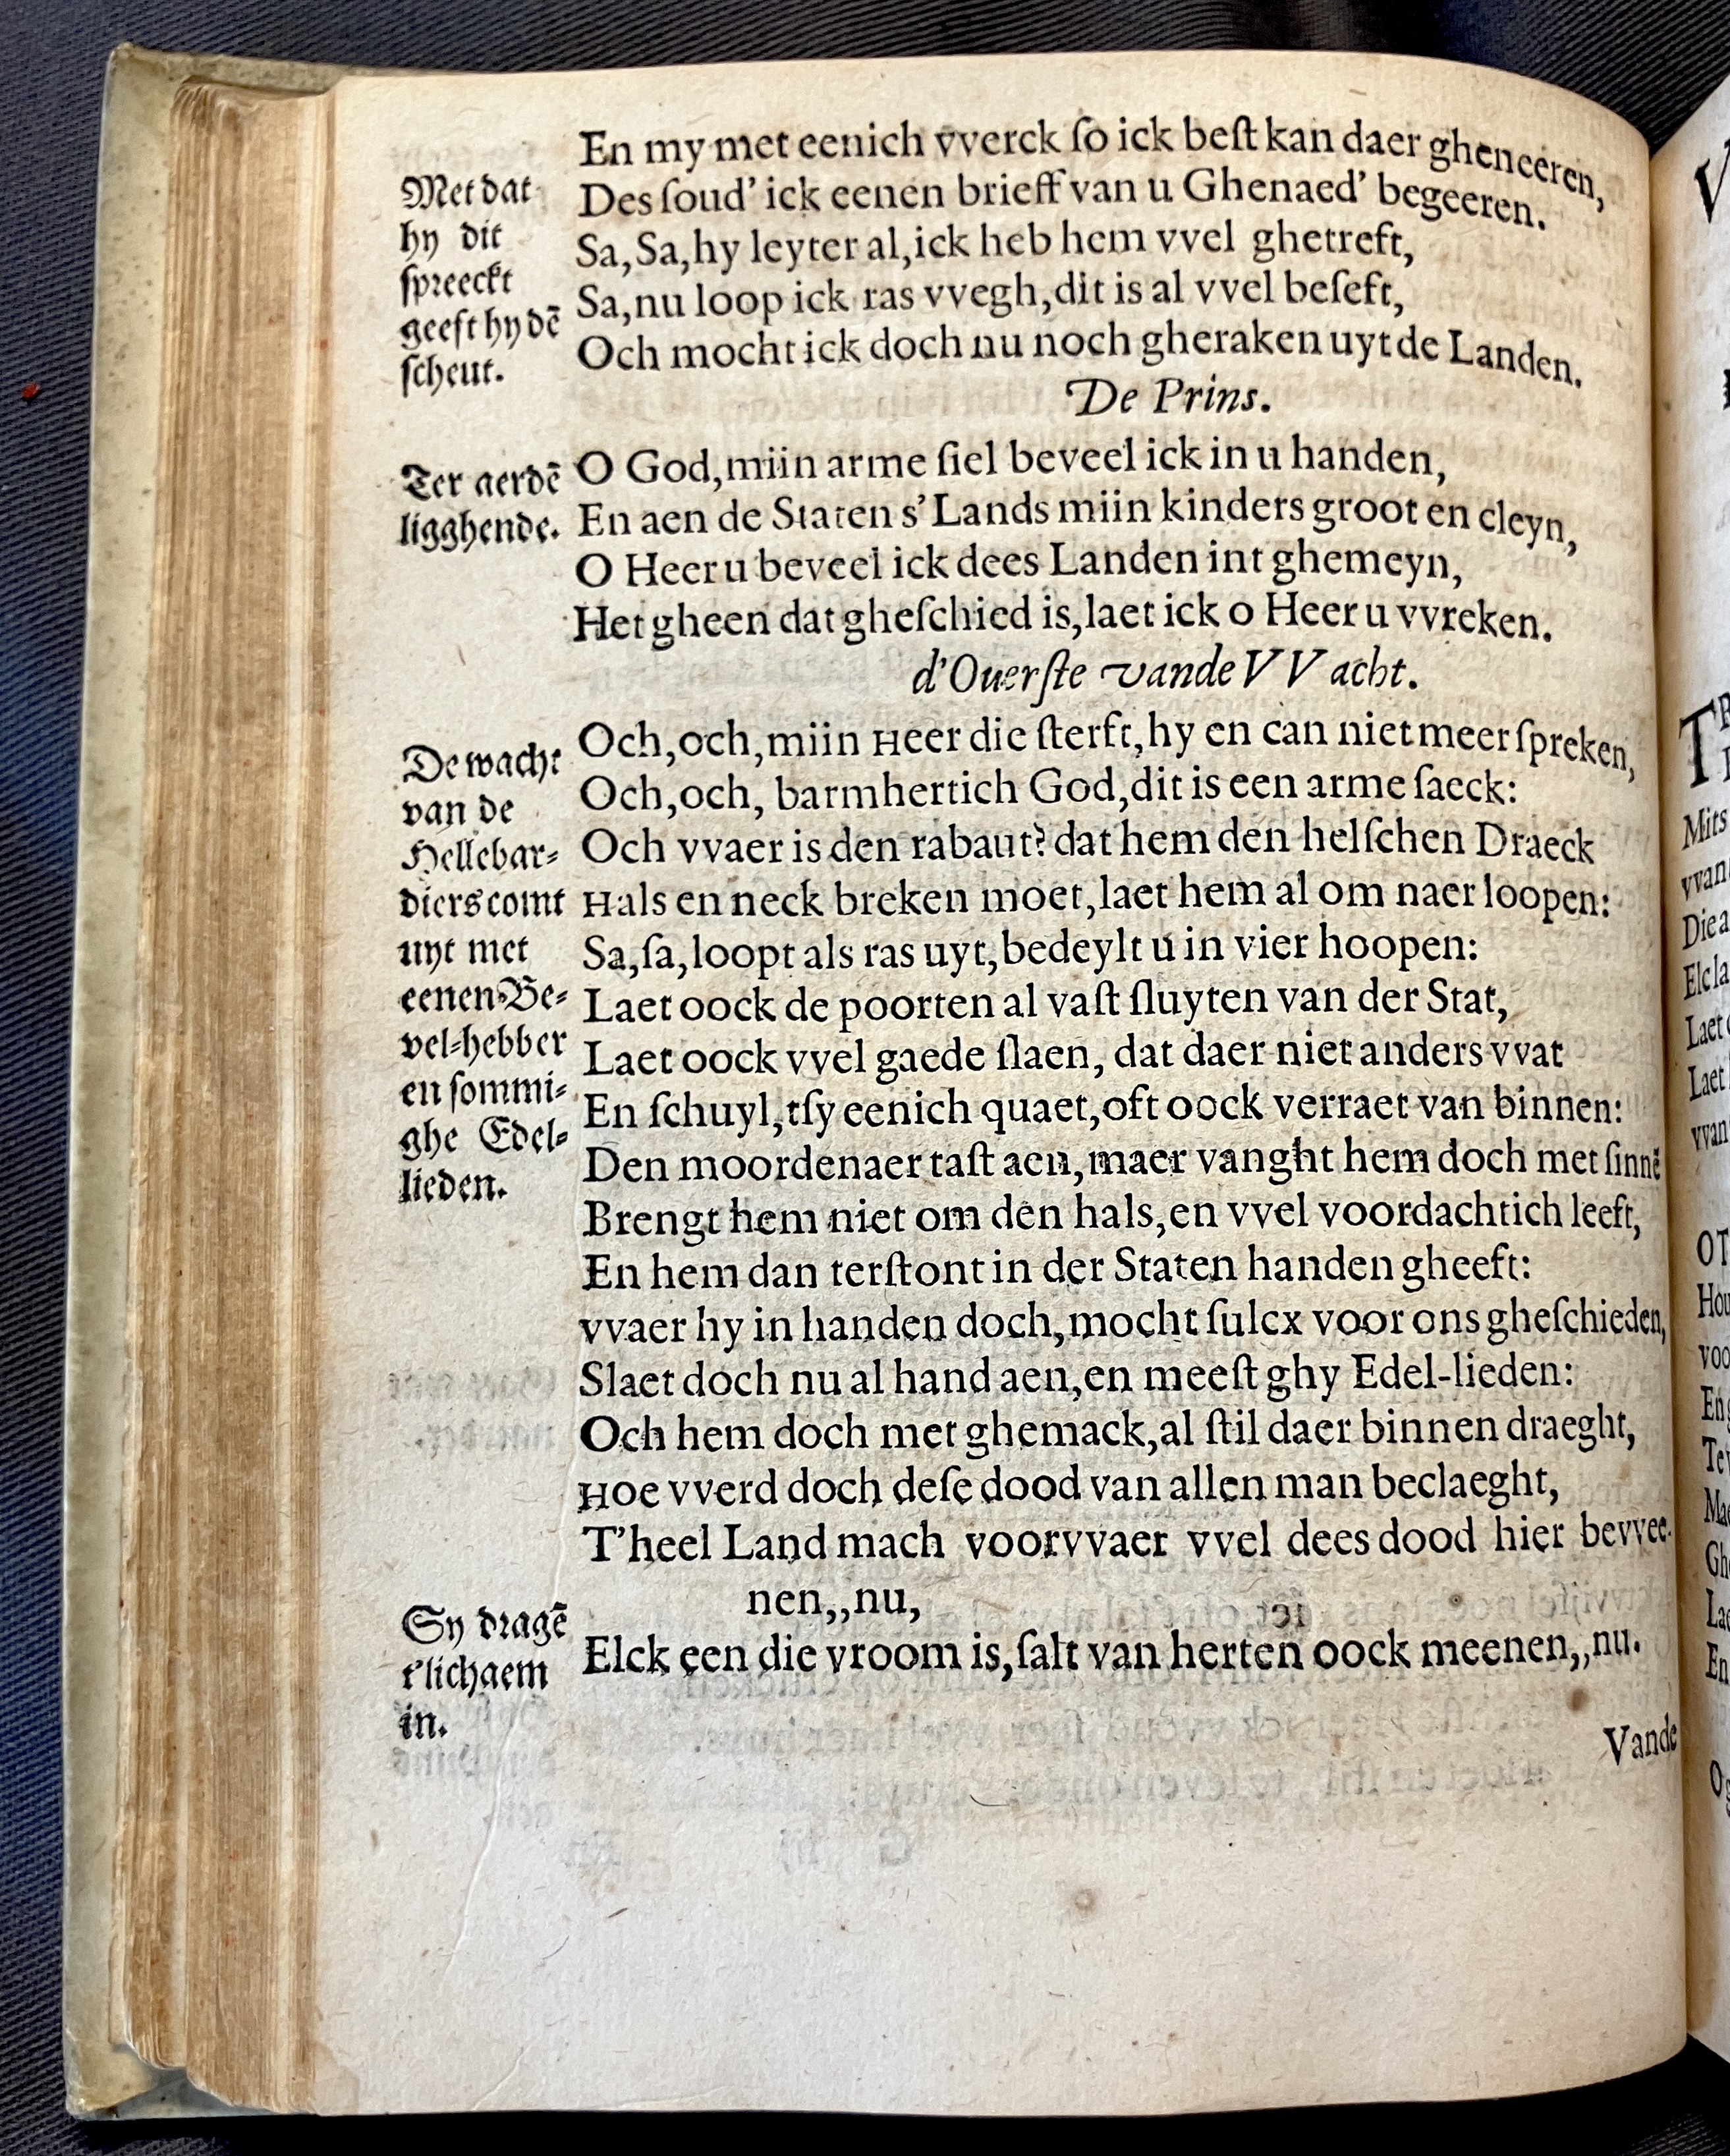 En my met eenich vverck ſo ick beſt kan daer gheneeren,
Met dat
Des ſoud' ick eenen brieff van u Ghenaed' begeeren.
hy dit
Sa, Sa, hy leyter al, ick heb hem vvel ghetreft,
ſpreeckt
Sa, nu loop ick ras vvegh, dit is al vvel beſeft,
geeft hy dē
Och mocht ick doch nu noch gheraken uyt de Landen.
ſcheut.
De Prins.
Ter aerdē
O God, miin arme ſiel beveel ick in u handen,
ligghende.
En aen de Staten s' Lands miin kinders groot en cleyn,
O Heer u beveel ick dees Landen int ghemeyn,
Het gheen dat gheſchied is, laet ick o Heer u vvreken.
d'Ouerſte vande VVacht.
Och, och, miin Heer die ſterft, hy en can niet meer ſpreken,
De wacht
Och, och, barmhertich God, dit is een arme ſaeck:
van de
Och vvaer is den rabaut? dat hem den helſchen Draeck
Hellebar-
Hals en neck breken moet, laet hem al om naer loopen:
diers comt
Sa, ſa, loopt als ras uyt, bedeylt u in vier hoopen:
uyt met
Laet oock de poorten al vaſt ſluyten van der Stat,
eenen Be-
Laet oock vvel gaede ſlaen, dat daer niet anders vvat
vel-hebber
En ſchuyl, tſy eenich quaet, oft oock verraet van binnen:
en ſommi-
Den moordenaer taſt aen, maer vanght hem doch met ſinnē
ghe Edel-
lieden.
Brengt hem niet om den hals, en vvel voordachtich leeft,
En hem dan terſtont in der Staten handen gheeft:
vvaer hy in handen doch, mocht ſulcx voor ons gheſchieden,
Slaet doch nu al hand aen, en meeſt ghy Edel-lieden:
Och hem doch met ghemack, al ſtil daer binnen draeght,
Hoe vverd doch deſe dood van allen man beclaeght,
T'heel Land mach voorvvaer vvel dees dood hier bevvee-
nen,,nu,
Sy dragē
Elck een die vroom is, ſalt van herten oock meenen,,nu.
t'lichaem
in.
Vande
Mits
Die a
Laet